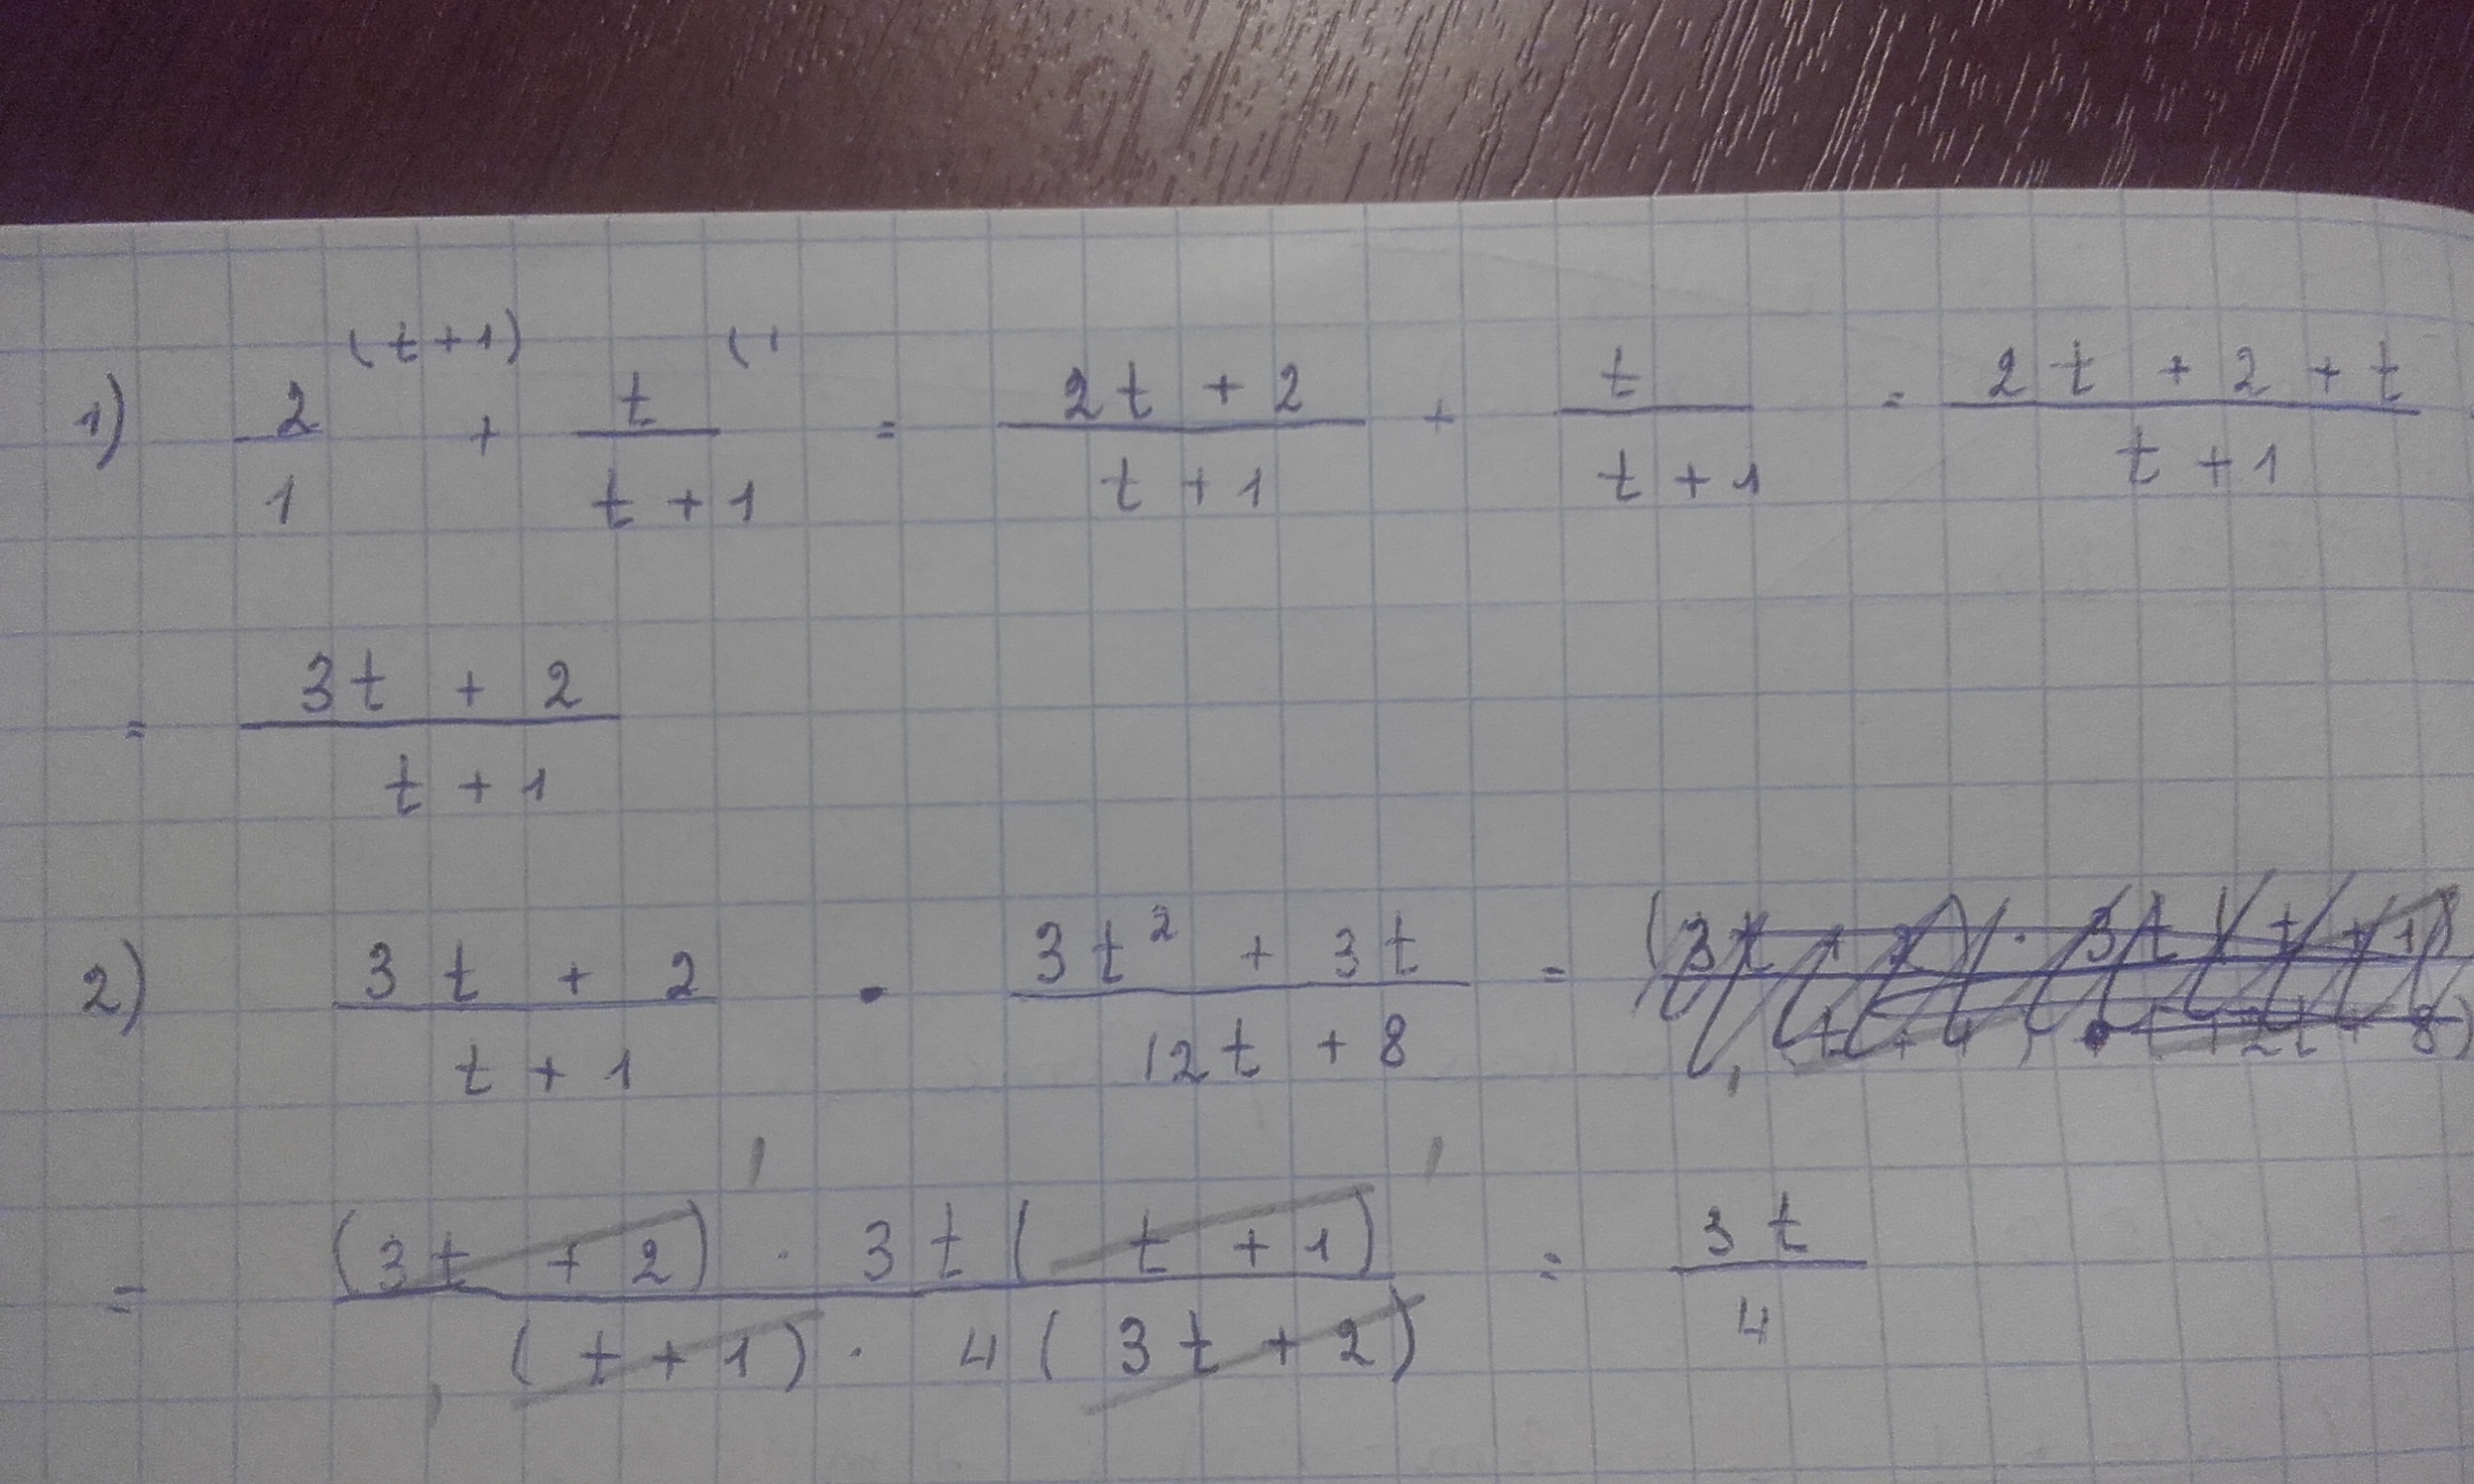 1) 2/1 (t+1) + t/(t+1) (1 = (2t+2)/(t+1) + t/(t+1) = (2t+2+t)/(t+1)
= (3t+2)/(t+1)
2) (3t+2)/(t+1) · (3t²+3t)/(12t+8) =
= ((3t+2) · 3t(t+1))/((t+1) · 4(3t+2)) = 3t/4